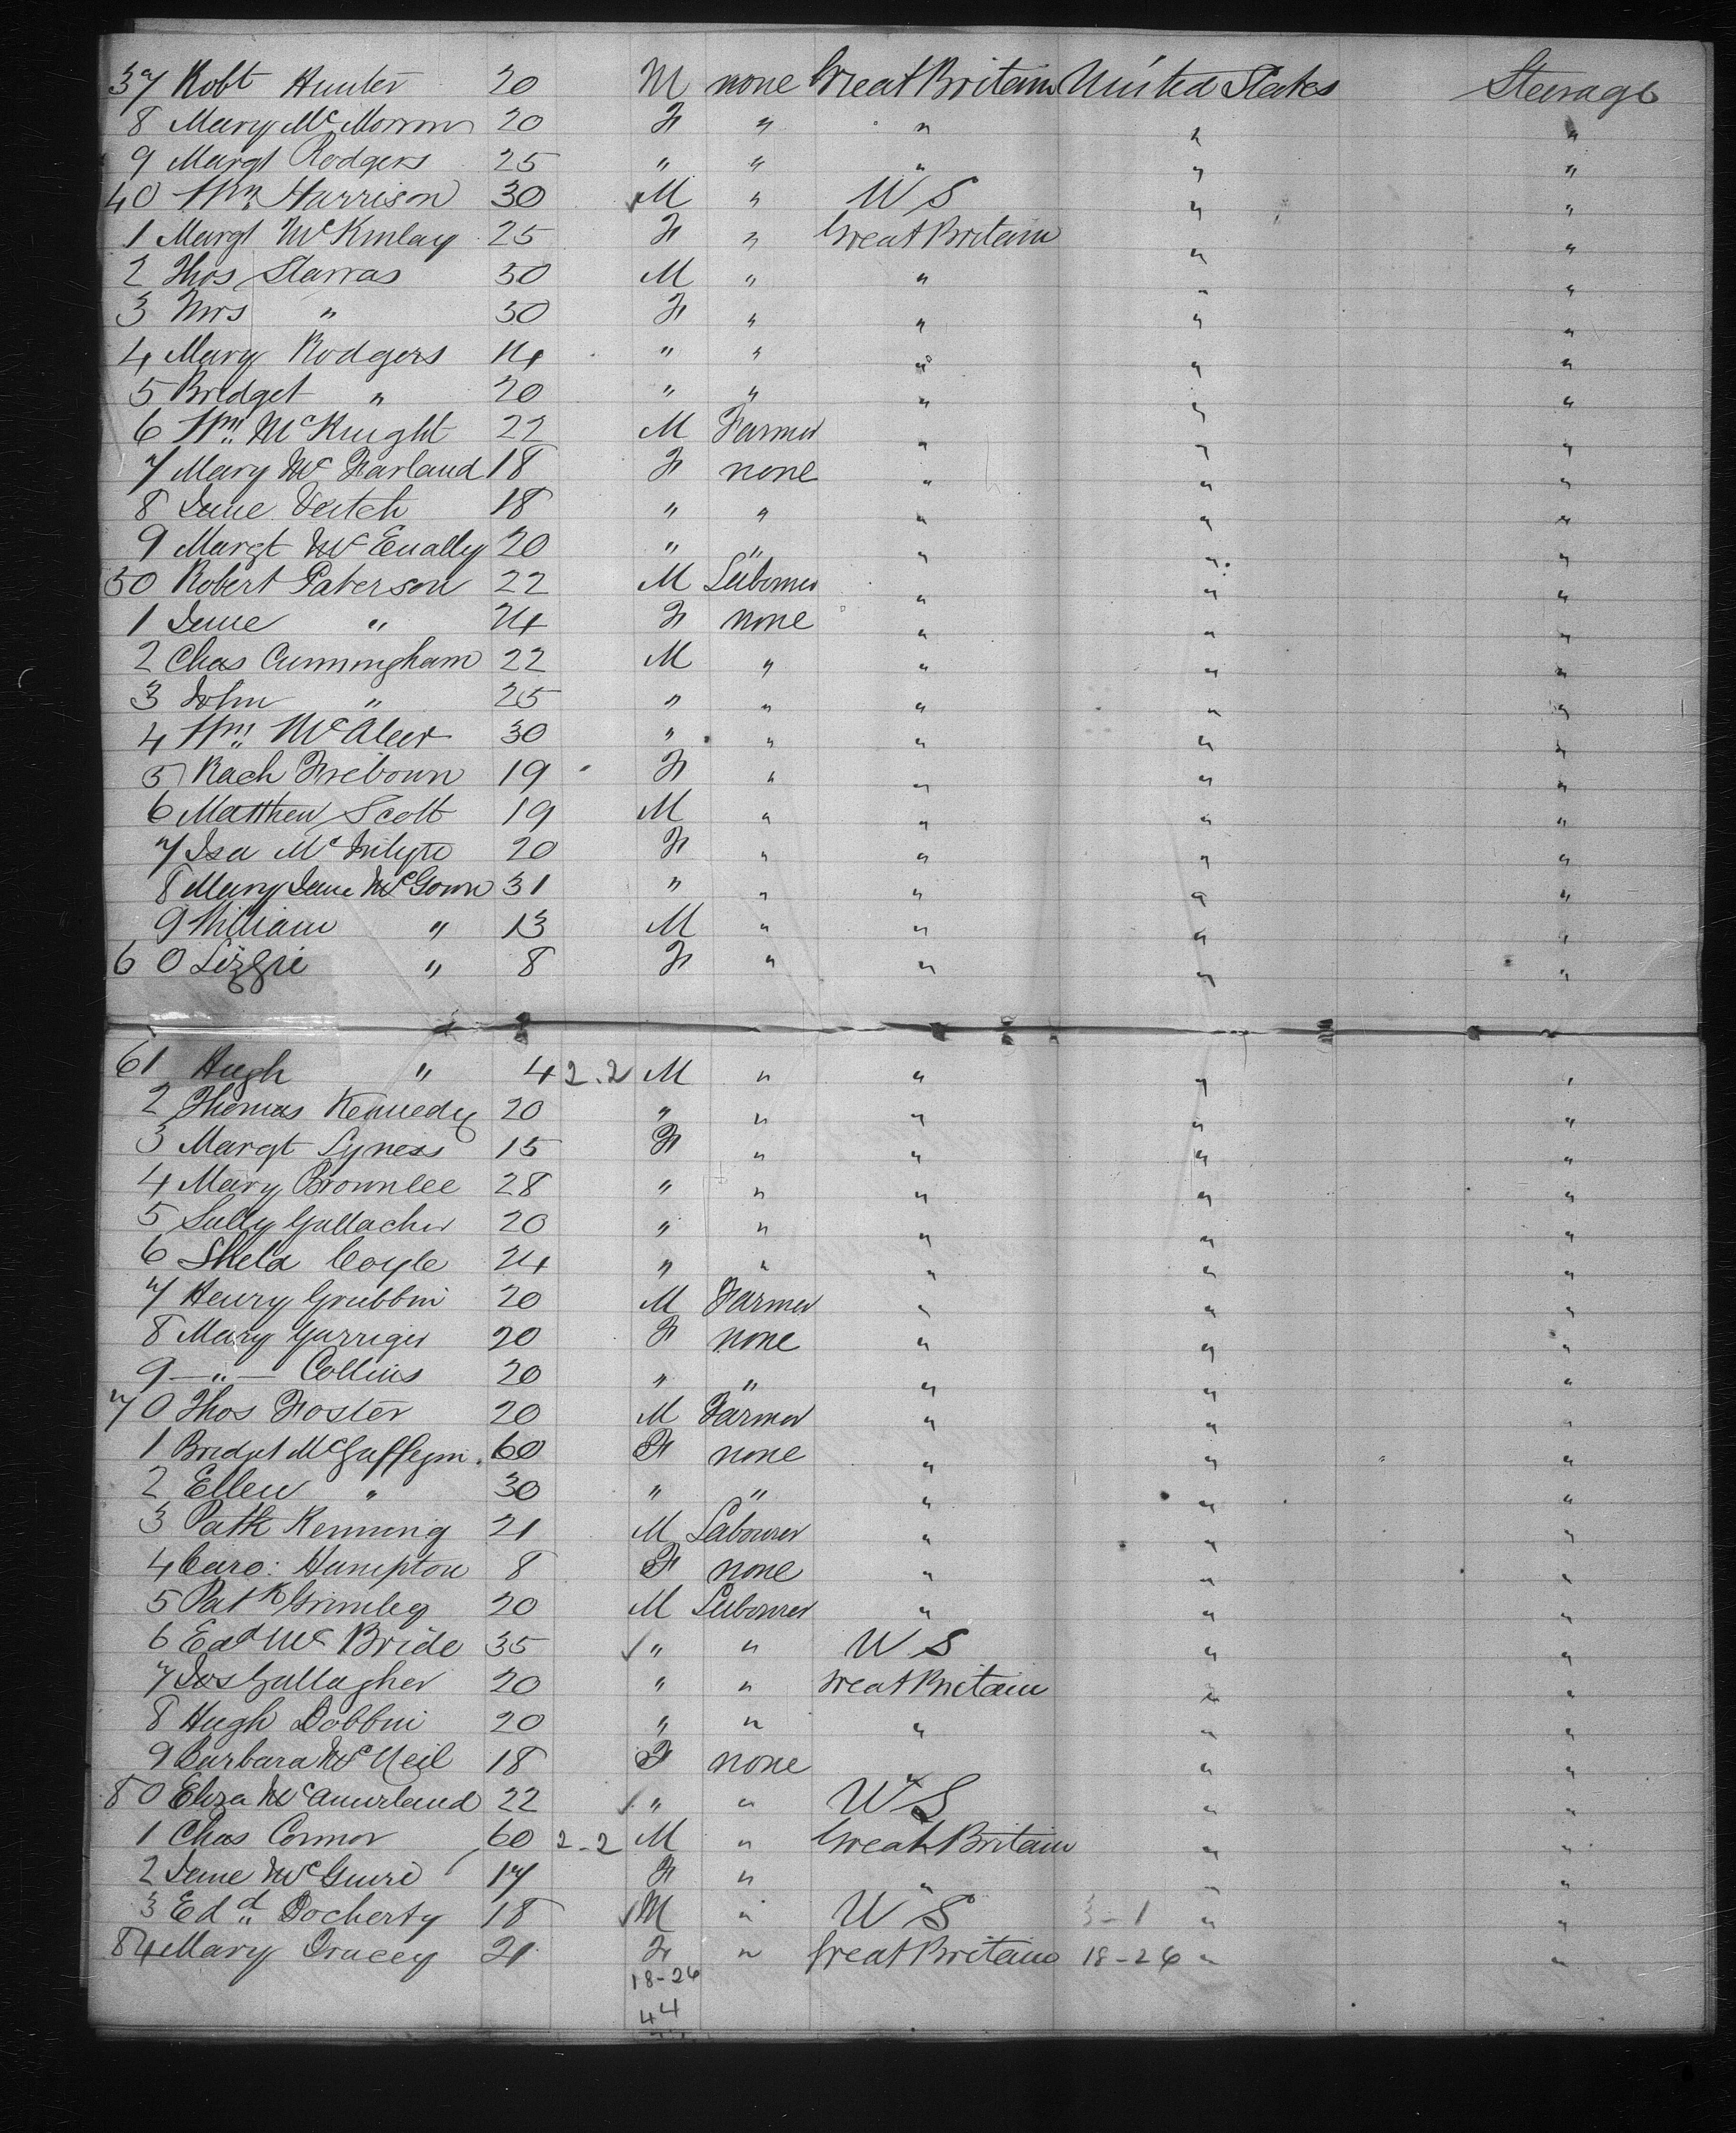 37 Robt Hunter 20 M none Great Britain United States Steerage
8 Mary McMorrow 20 F " " " "
9 Margt Rodgers 25 " " " " "
40 Wm Harrison 30 M " U S " "
1 Margt McKinlay 25 F " Great Britain " "
2 Thos Starras 30 M " " " "
3 Mrs " 30 F " " " "
4 Mary Rodgers 14 " " " " "
5 Bridget " 20 " " " " "
6 Wm McKnight 22 M Farmer " " "
7 Mary McFarland 18 F none " " "
8 Jane Veitch 18 " " " " "
9 Margt McEnally 20 " " " " "
50 Robert Paterson 22 M Labourer " " "
1 Jane " 24 F none " " "
2 Chas Cunningham 22 M " " " "
3 John " 25 " " " " "
4 Wm McAleer 30 " " " " "
5 Rach Frebourn 19 F " " " "
6 Matthew Scott 19 M " " " "
7 Isa McIntyre 20 F " " " "
8 Mary Jane McGown 31 " " " " "
9 William " 13 M " " " "
60 Lizzie " 8 F " " " "
61 Hugh " 4 2.2 M " " " "
2 Thomas Kennedy 20 " " " " "
3 Margt Lyness 15 F " " " "
4 Mary Brownlee 28 " " " " "
5 Sally Gallacher 20 " " " " "
6 Shela Coyle 24 " " " " "
7 Henry Gribbin 20 M Farmer " " "
8 Mary Garriger 20 F none " " "
9 —"— Collins 20 " " " " "
70 Thos Foster 20 M Farmer " " "
1 Bridget McGaffegin 60 F none " " "
2 Ellen " 30 " " " " "
3 Patk Kenning 21 M Labourer " " "
4 Caro: Hampton 8 F none " " "
5 Patk Grimley 20 M Labourer " " "
6 Edd McBride 35 " " U S " "
7 Jos Gallagher 20 " " Great Britain " "
8 Hugh Dobbin 20 " " " " "
9 Barbara McNeil 18 F none " " "
80 Eliza McAmurland 22 " " U S " "
1 Chas Connor 60 2-2 M " Great Britain " "
2 Jane McGuire 17 F " " " "
3 Edd Docherty 18 M " U S 3-1 " "
84 Mary Dracey 21 F " Great Britain 18-26 " "
18-26
44